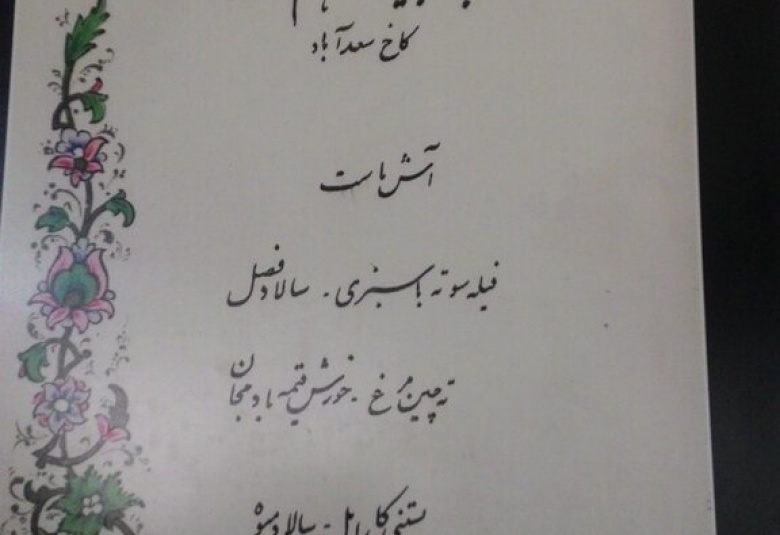 کاخ سعدآباد
آش ماست
فیله سوته با سبزی - سالاد فصل
ته چین مرغ - خورش قیمه بادمجان
بستنی کارامل - سالاد میوه